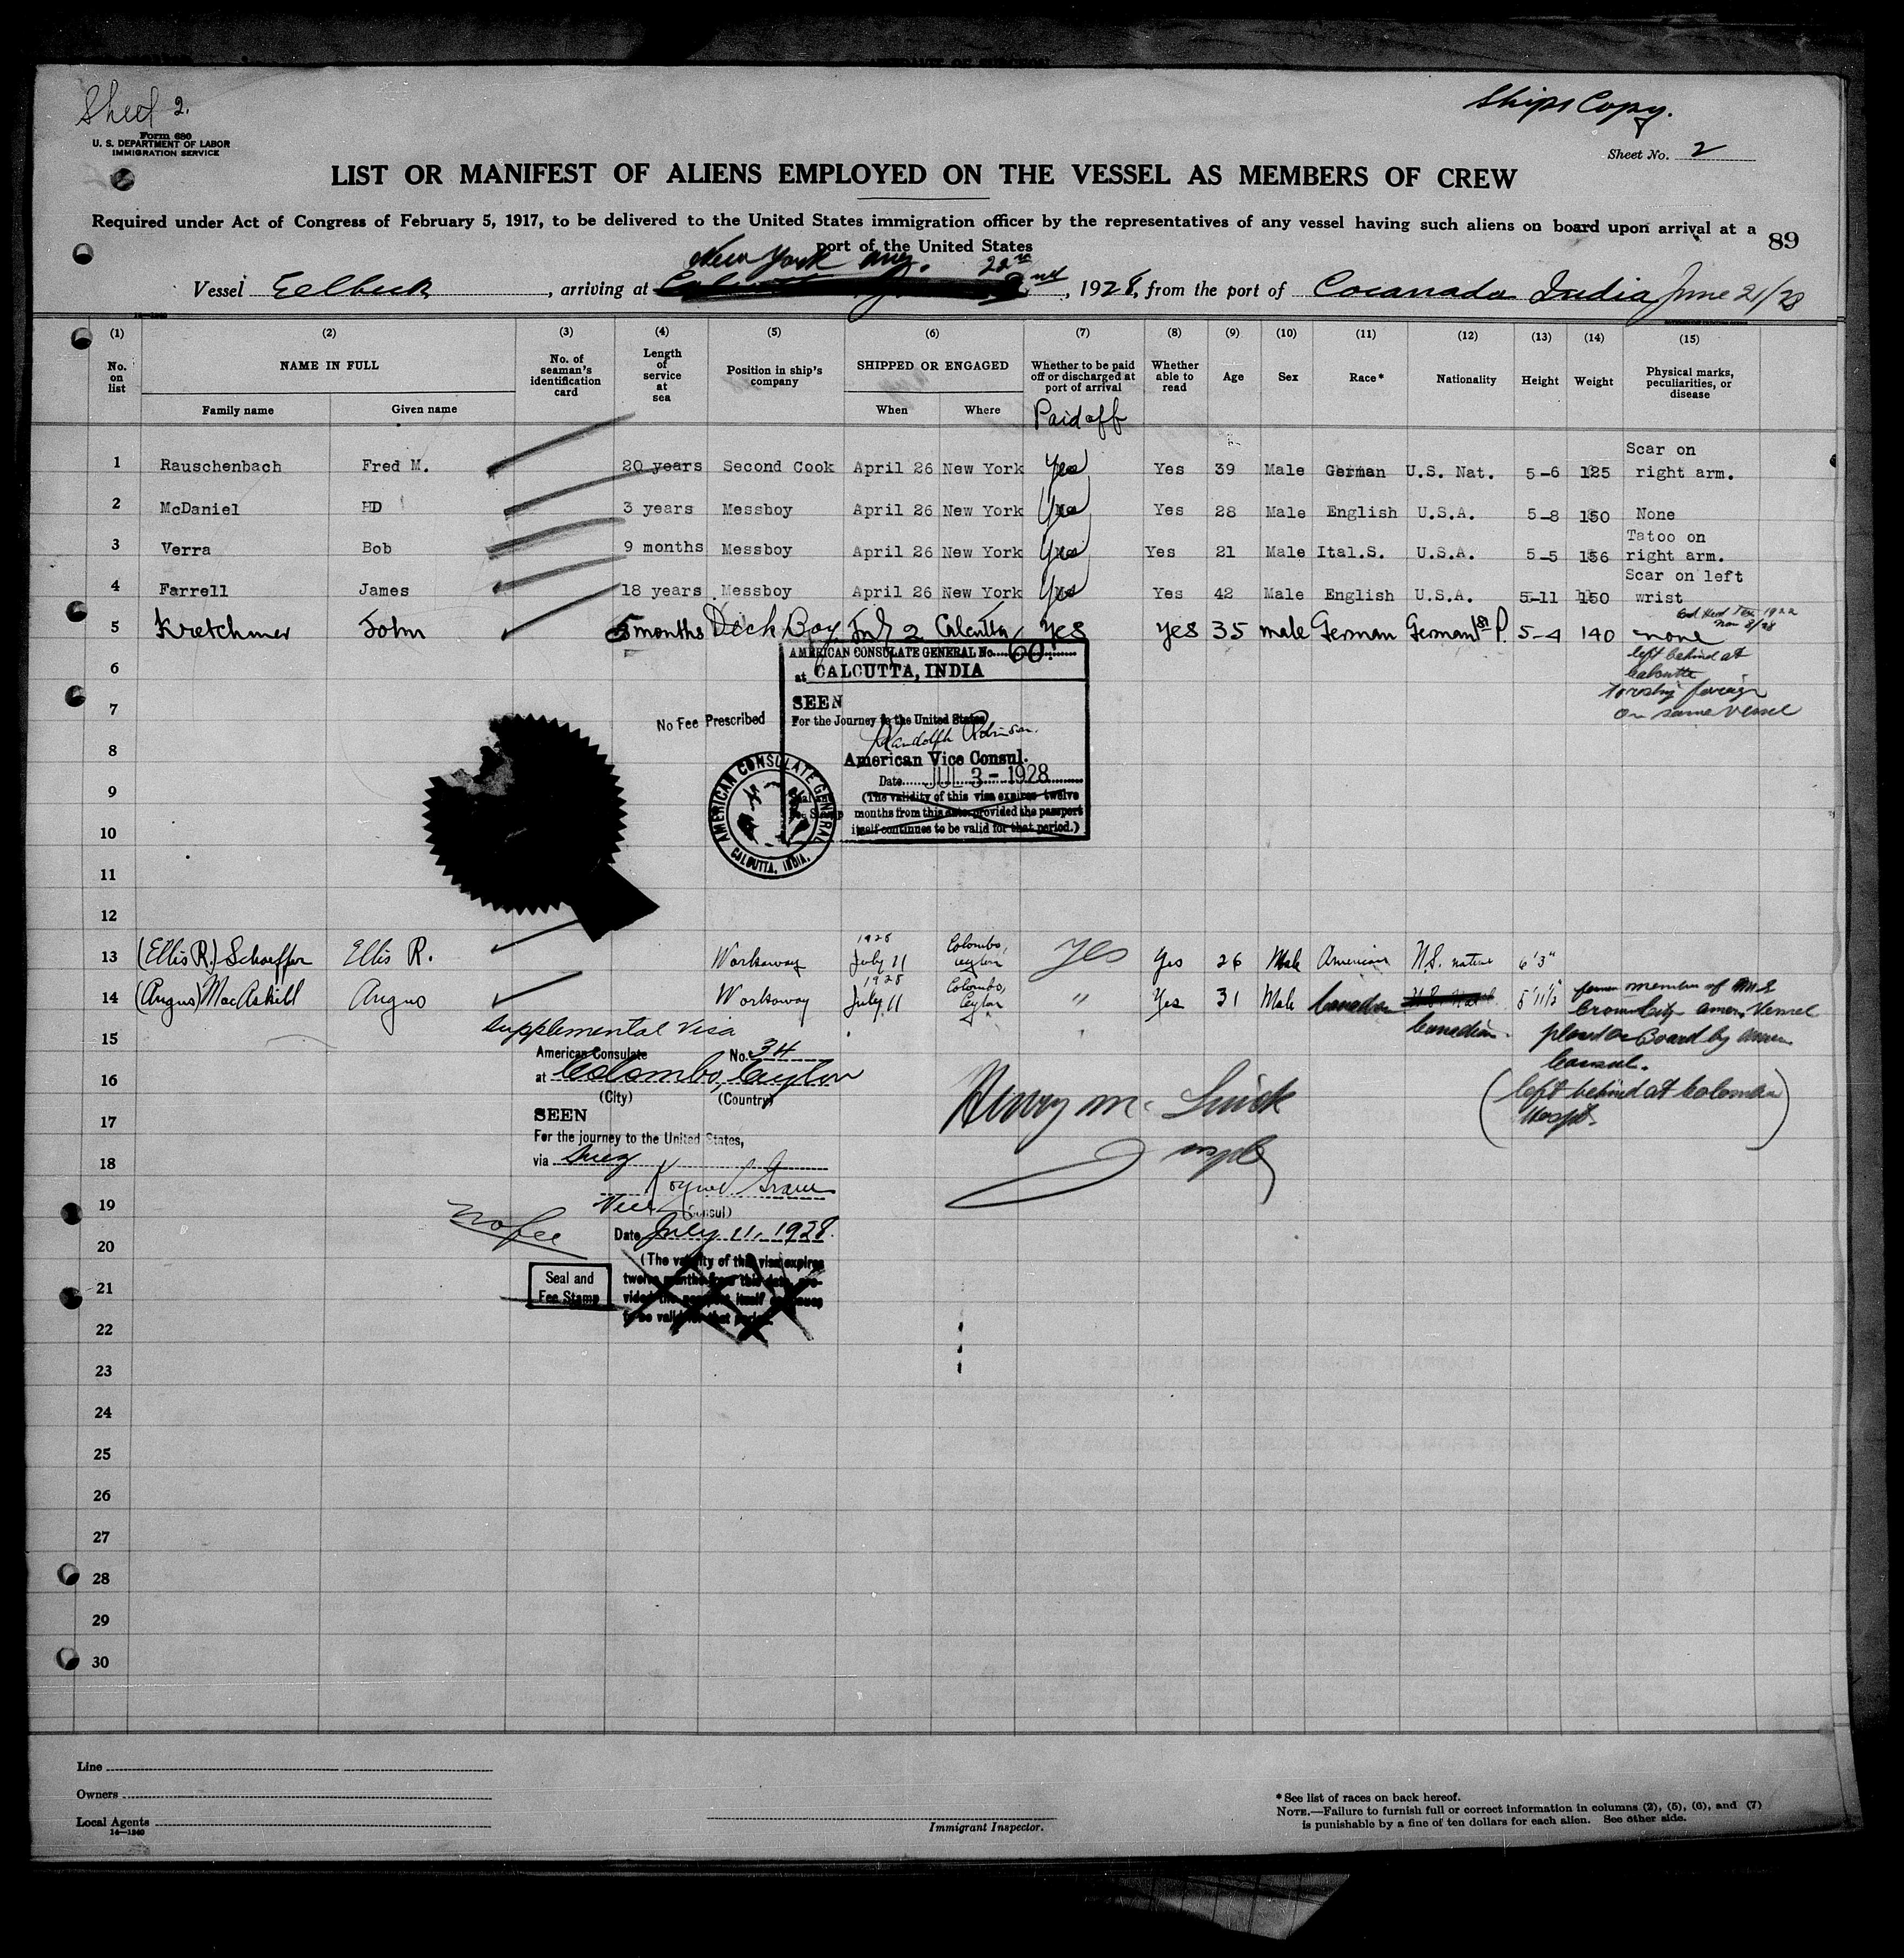 Sheet 2.
Ships Copy.
Form 680
U. S. DEPARTMENT OF LABOR
IMMIGRATION SERVICE
Sheet No. 2
LIST OR MANIFEST OF ALIENS EMPLOYED ON THE VESSEL AS MEMBERS OF CREW
Required under Act of Congress of February 5, 1917, to be delivered to the United States immigration officer by the representatives of any vessel having such aliens on board upon arrival at a
port of the United States
89
New York Aug. 22nd
Vessel Eelbeck, arriving at 2nd, 1928, from the port of Cocanada India June 21/28
(1) (2) (3) (4) (5) (6) (7) (8) (9) (10) (11) (12) (13) (14) (15)
No. on list NAME IN FULL Family name Given name No. of seaman's identification card Length of service at sea Position in ship's company SHIPPED OR ENGAGED When Where Whether to be paid off or discharged at port of arrival Whether able to read Age Sex Race* Nationality Height Weight Physical marks, peculiarities, or disease
Paid off
1 Rauschenbach Fred M. 20 years Second Cook April 26 New York Yes Yes 39 Male German U.S. Nat. 5-6 125 Scar on right arm.
2 McDaniel HD 3 years Messboy April 26 New York Yes Yes 28 Male English U.S.A. 5-8 150 None
3 Verra Bob 9 months Messboy April 26 New York Yes Yes 21 Male Ital.S. U.S.A. 5-5 156 Tatoo on right arm.
4 Farrell James 18 years Messboy April 26 New York Yes Yes 42 Male English U.S.A. 5-11 150 Scar on left wrist
5 Kretchmer John 5 months Deck Boy July 2 Calcutta Yes Yes 35 male German German 1st P. 5-4 140 none
left behind at
Calcutta
foreign
on same vessel
6
7
8
9
10
11
12
AMERICAN CONSULATE GENERAL No. 601
at CALCUTTA, INDIA
SEEN
No Fee Prescribed
For the Journey to the United States
Randolph Robinson.
American Vice Consul.
Date JUL 3 - 1928
(The validity of this visa expires twelve
months from this date provided the passport
itself continues to be valid for that period.)
AMERICAN CONSULATE GENERAL
CALCUTTA, INDIA.
13 (Ellis R.) Schaeffer Ellis R. Workaway 1928 July 11 Colombo, Ceylon Yes Yes 26 Male American U.S. native 6'3"
14 (Angus) MacAskill Angus Workaway 1928 July 11 Colombo, Ceylon " Yes 31 Male Canadian Canadian 5'11½" former member of M.S.
City Amer. Vessel
placed on Board by Amer.
Consul.
(left behind at Colombo
Hospt.)
15
16
17
18
19
20
21
22
23
24
25
26
27
28
29
30
Supplemental Visa
American Consulate No. 34
at Colombo, Ceylon
(City) (Country)
SEEN
For the journey to the United States,
via Suez
Vice (Consul)
No fee
Date July 11, 1928.
(The validity of this visa expires
twelve months from this date, pro-
vided the passport itself continues
to be valid for that period.)
Seal and
Fee Stamp
Henry Mc
Insptr
Line
Owners
Local Agents
14—1240
Immigrant Inspector.
* See list of races on back hereof.
NOTE.—Failure to furnish full or correct information in columns (2), (5), (6), and (7)
is punishable by a fine of ten dollars for each alien. See other side.